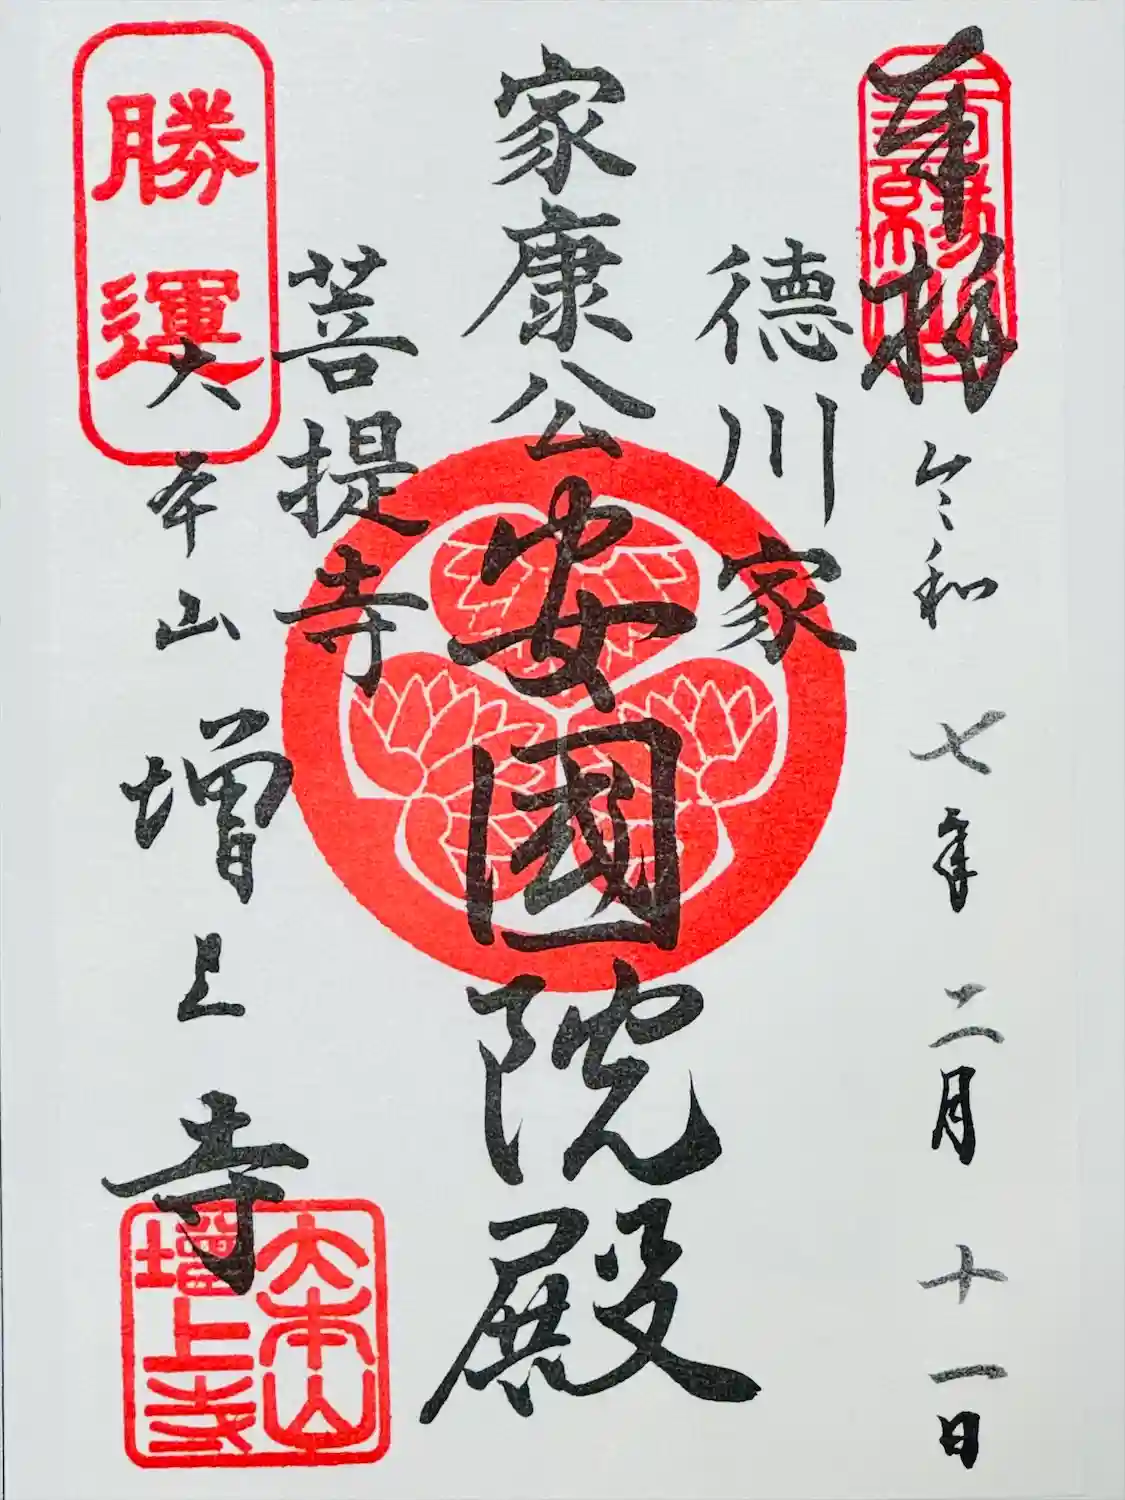 奉拝
令和七年二月十一日
徳川家
家康公
安國院殿
菩提寺
勝運
大本山
増上寺
大本山
増上寺